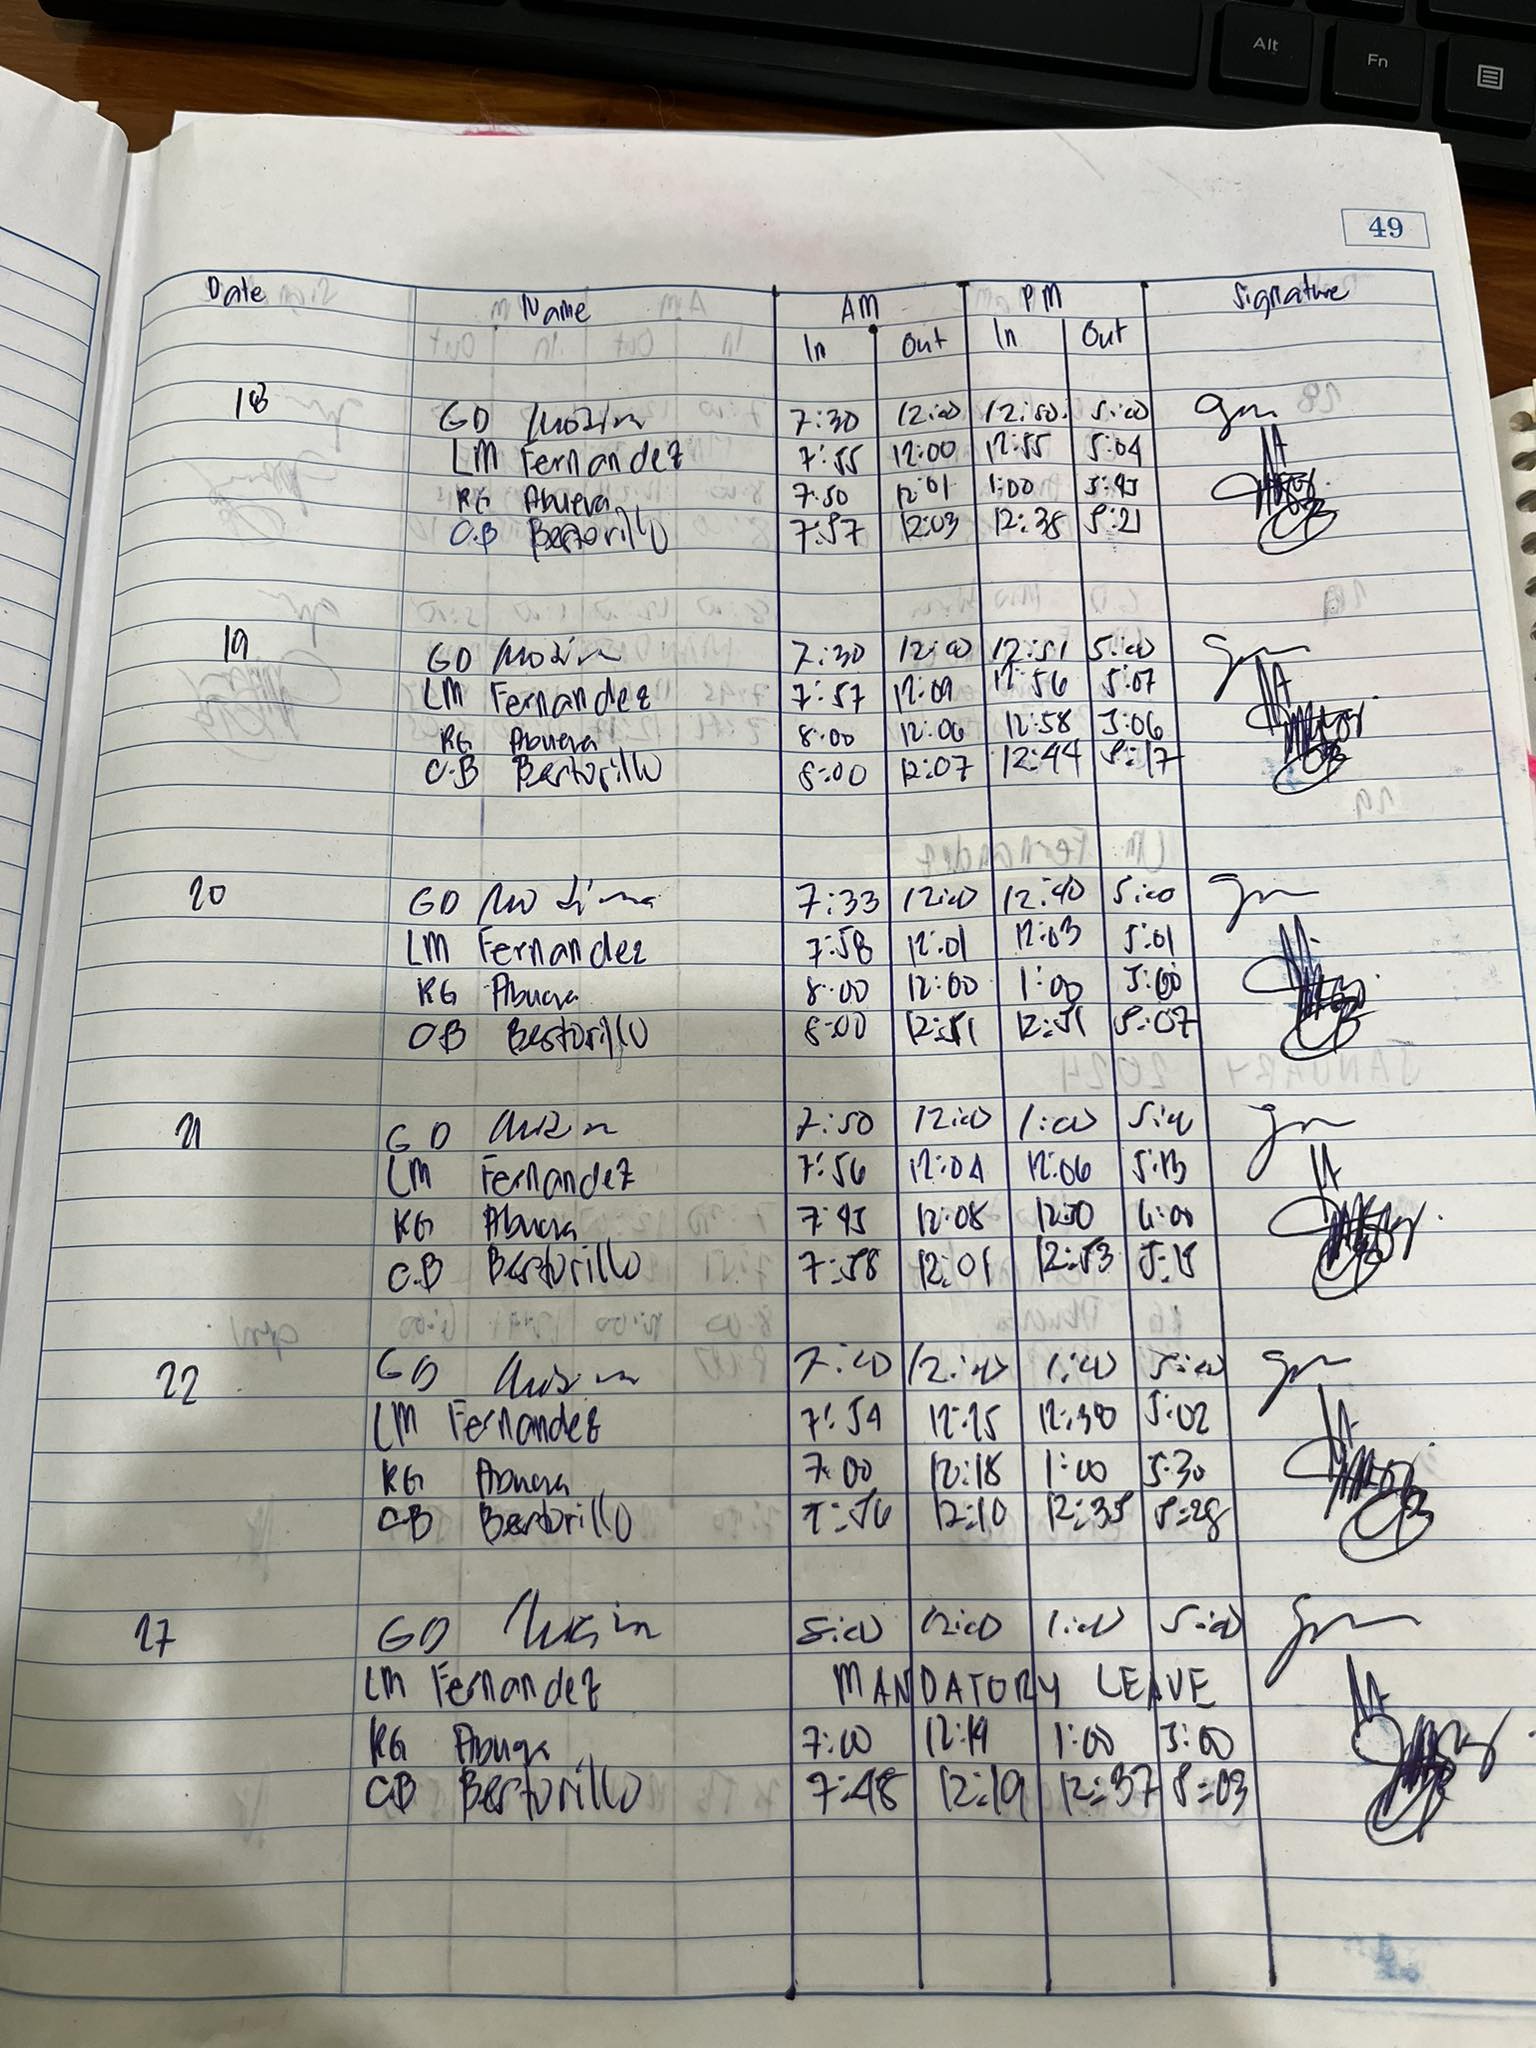 Alt
Fn
49
Date Name AM PM Signature
In Out In Out
18 GD 7:30 12:00 12:50 5:00
LM Fernandez 7:55 12:00 12:55 5:04
RG Abueva 7:50 12:01 1:00 5:45
C.B Bestorillo 7:57 12:03 12:38 5:21
19 GD 7:30 12:00 12:51 5:00
LM Fernandez 7:57 12:09 12:56 5:07
RG Abueva 8:00 12:06 12:58 5:06
C.B Bestorillo 8:00 12:07 12:44 5:17
20 GD 7:33 12:00 12:40 5:00
LM Fernandez 7:58 12:01 12:03 5:01
RG Abueva 8:00 12:00 1:00 5:00
CB Bestorillo 8:00 12:51 12:51 5:07
21 GD 7:50 12:00 1:00 5:00
LM Fernandez 7:56 12:04 12:06 5:13
RG Abueva 7:45 12:08 12:50
C.B Bestorillo 7:58 12:01 12:53 5:15
22 GD 7:00 12:00 1:00 5:00
LM Fernandez 7:54 12:25 12:30 5:02
RG Abueva 7:00 12:18 1:00 5:30
CB Bestorillo 7:56 12:10 12:35 5:28
27 GD 8:00 12:00 1:00 5:00
LM Fernandez MANDATORY LEAVE
RG Abueva 7:00 12:19 1:00 5:00
CB Bestorillo 7:48 12:19 12:37 5:03